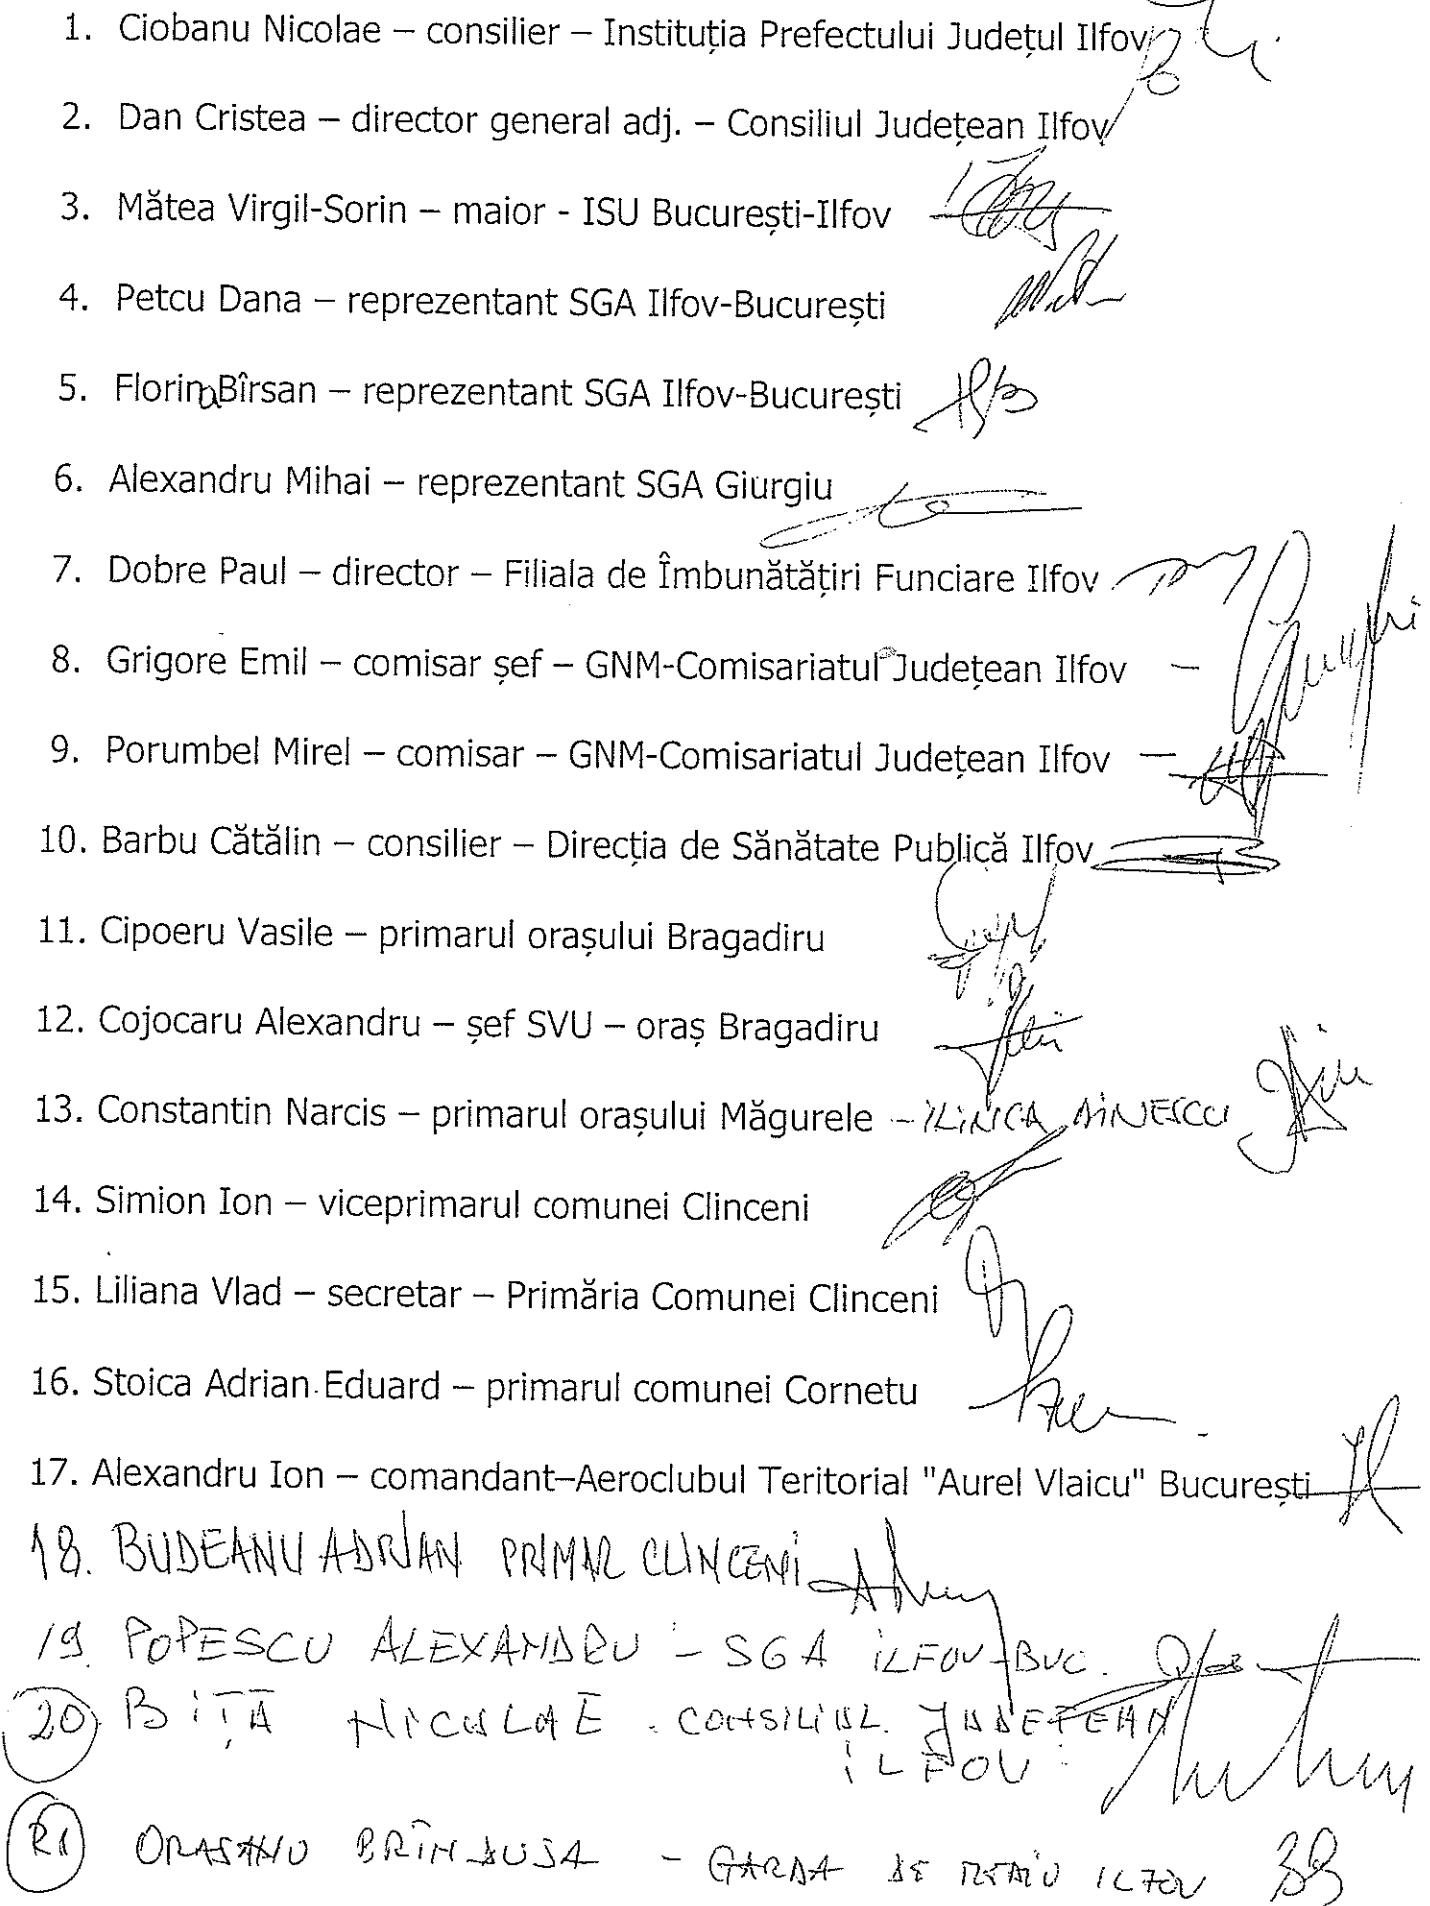 1. Ciobanu Nicolae – consilier – Instituția Prefectului Județul Ilfov
2. Dan Cristea – director general adj. – Consiliul Județean Ilfov
3. Mătea Virgil-Sorin – maior - ISU București-Ilfov
4. Petcu Dana – reprezentant SGA Ilfov-București
5. Florina Bîrsan – reprezentant SGA Ilfov-București
6. Alexandru Mihai – reprezentant SGA Giurgiu
7. Dobre Paul – director – Filiala de Îmbunătățiri Funciare Ilfov
8. Grigore Emil – comisar șef – GNM-Comisariatul Județean Ilfov –
9. Porumbel Mirel – comisar – GNM-Comisariatul Județean Ilfov –
10. Barbu Cătălin – consilier – Direcția de Sănătate Publică Ilfov
11. Cipoeru Vasile – primarul orașului Bragadiru
12. Cojocaru Alexandru – șef SVU – oraș Bragadiru
13. Constantin Narcis – primarul orașului Măgurele – ILINCA DINESCU
14. Simion Ion – viceprimarul comunei Clinceni
15. Liliana Vlad – secretar – Primăria Comunei Clinceni
16. Stoica Adrian Eduard – primarul comunei Cornetu
17. Alexandru Ion – comandant–Aeroclubul Teritorial "Aurel Vlaicu" București
18. BUDEANU ADRIAN PRIMAR CLINCENI
19. POPESCU ALEXANDRU – SGA ILFOV-BUC.
20 BIȚĂ NICULAE . CONSILIUL JUDETEAN
ILFOV
21 ORASANU BRÎNDUSA – GARDA DE MEDIU ILFOV